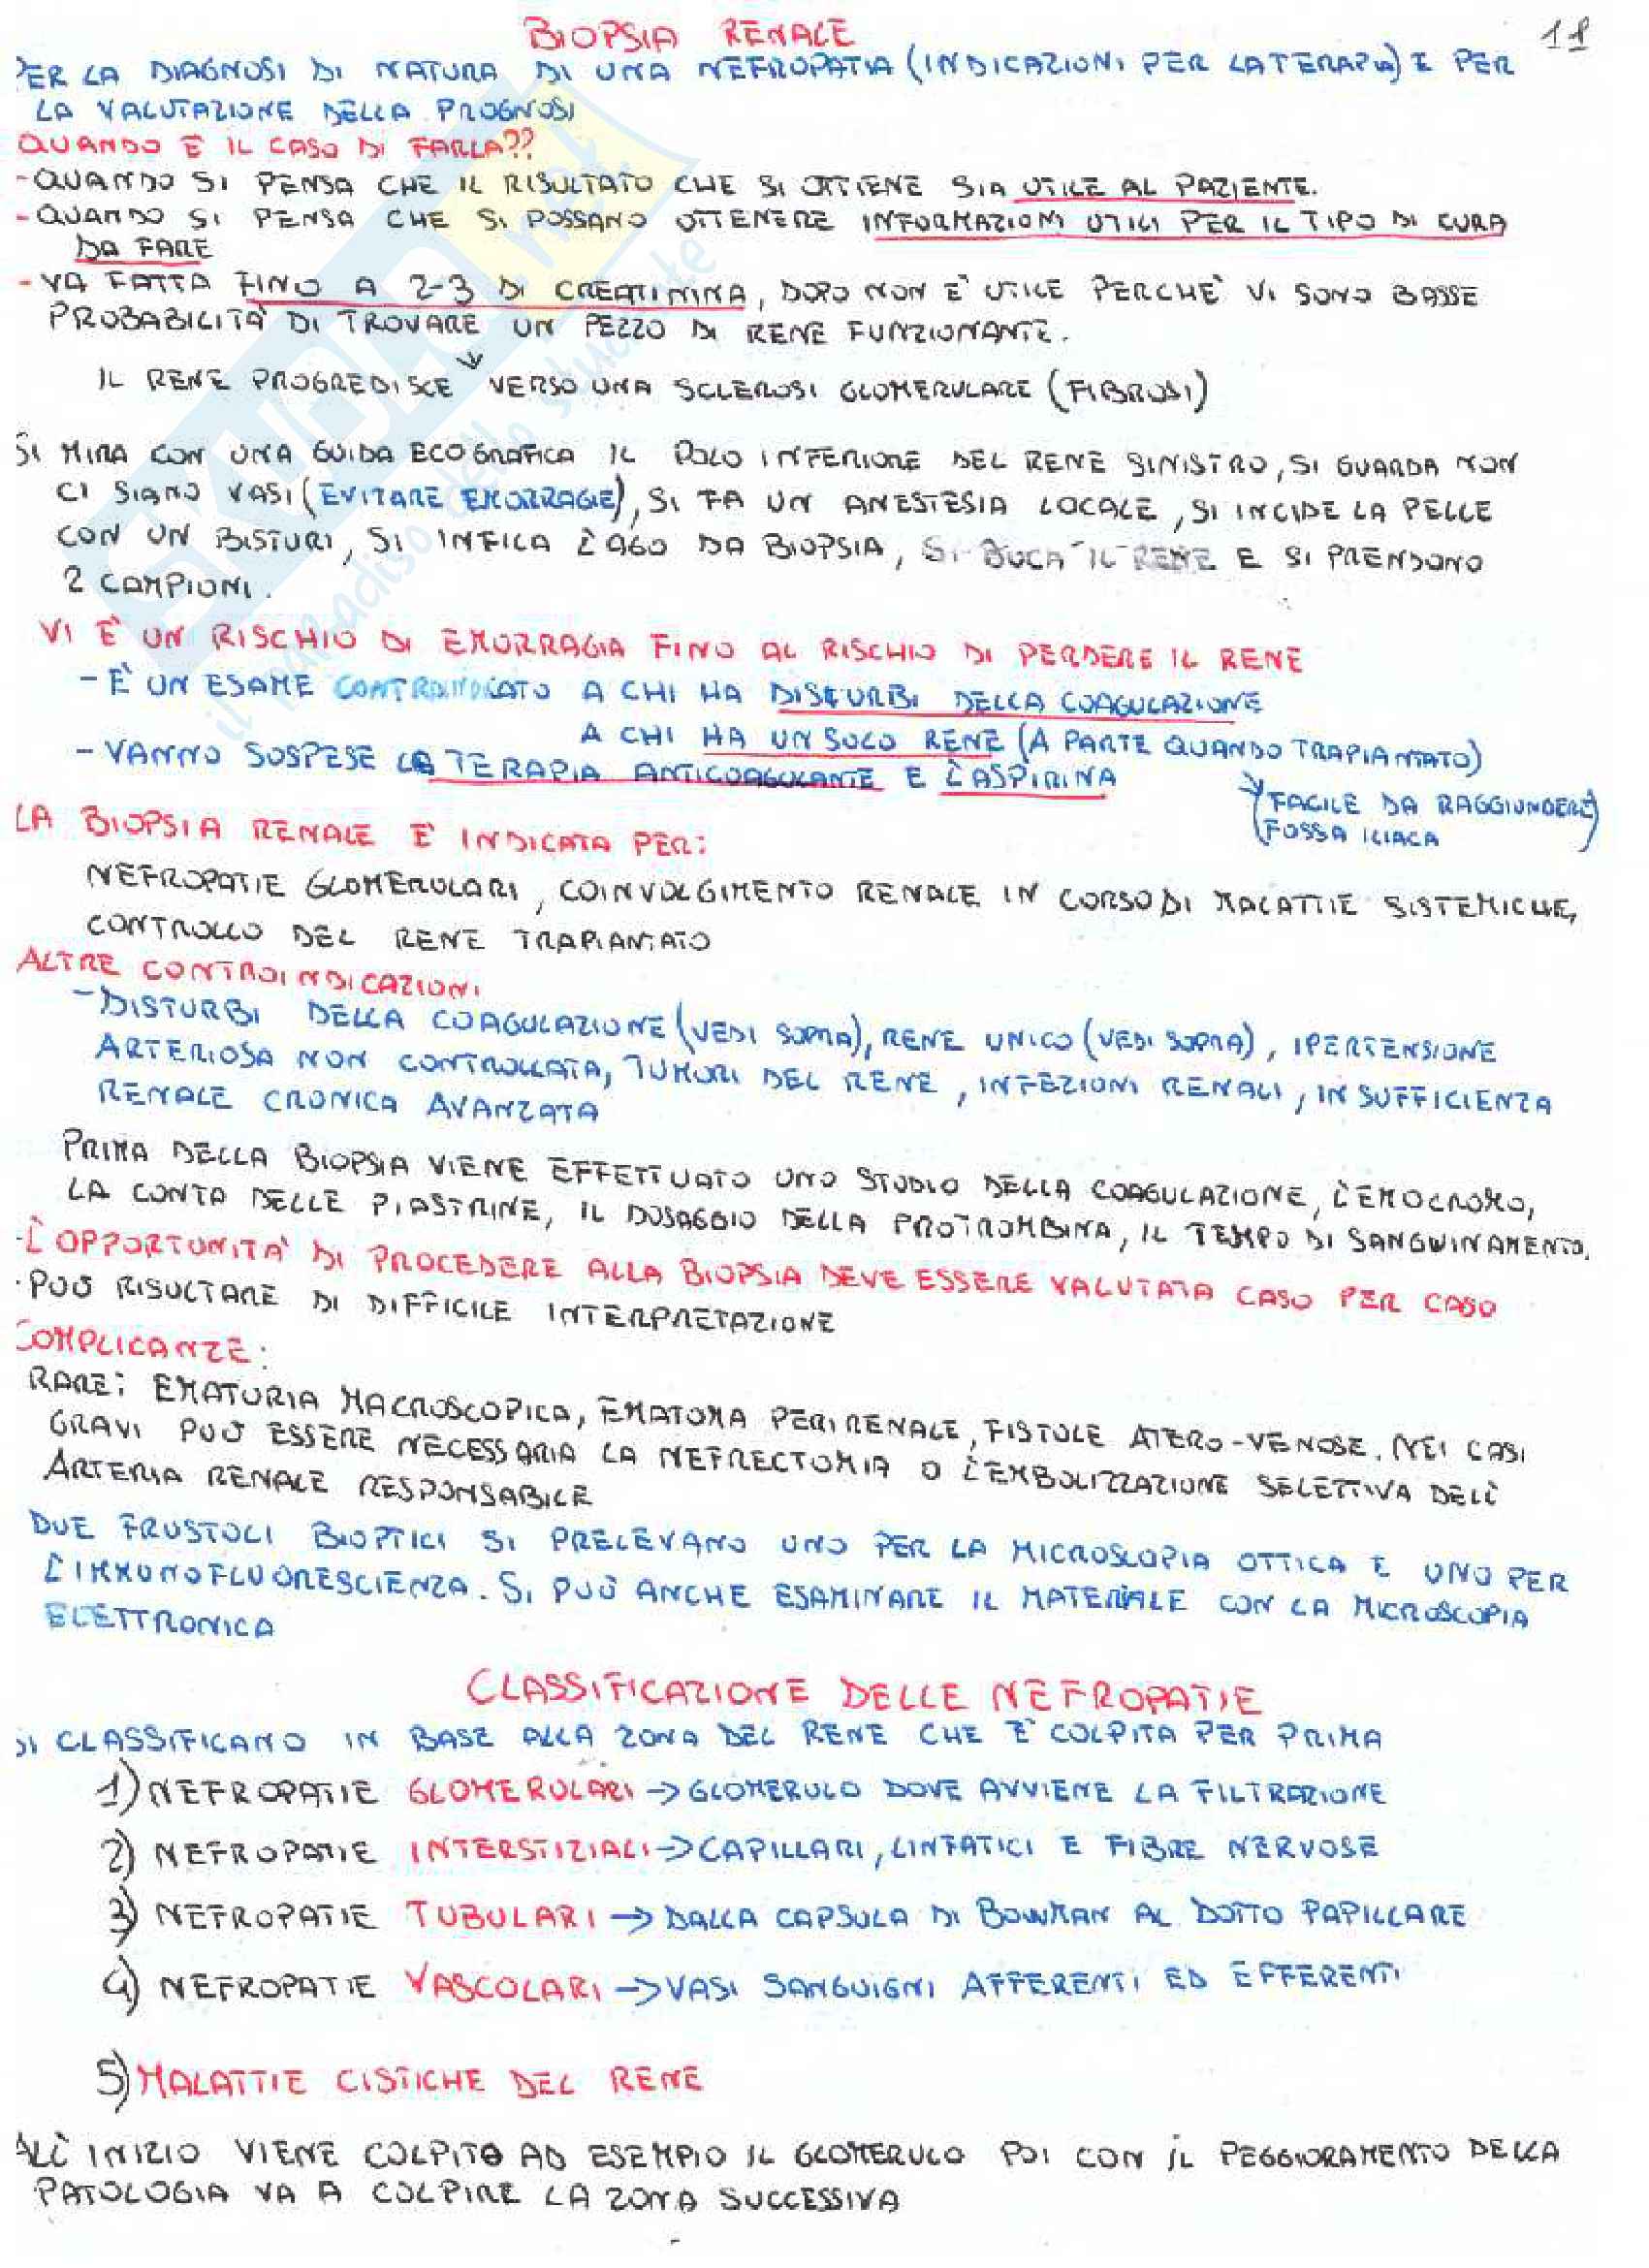 BIOPSIA RENALE
18
PER LA DIAGNOSI DI NATURA DI UNA NEFROPATIA (INDICAZIONI PER LA TERAPIA) E PER
LA VALUTAZIONE DELLA PROGNOSI
QUANDO È IL CASO DI FARLA??
-QUANDO SI PENSA CHE IL RISULTATO CHE SI OTTIENE SIA UTILE AL PAZIENTE.
-QUANDO SI PENSA CHE SI POSSANO OTTENERE INFORMAZIONI UTILI PER IL TIPO DI CURA
DA FARE
-VA FATTA FINO A 2-3 DI CREATININA, DOPO NON E' UTILE PERCHE' VI SONO BASSE
PROBABILITA' DI TROVARE UN PEZZO DI RENE FUNZIONANTE.
IL RENE PROGREDISCE VERSO UNA SCLEROSI GLOMERULARE (FIBROSI)
SI MIRA CON UNA GUIDA ECOGRAFICA IL POLO INFERIORE DEL RENE SINISTRO, SI GUARDA NON
CI SIANO VASI (EVITARE EMORRAGIE), SI FA UN ANESTESIA LOCALE, SI INCIDE LA PELLE
CON UN BISTURI, SI INFILA L'AGO DA BIOPSIA, SI BUCA IL RENE E SI PRENDONO
2 CAMPIONI.
VI E' UN RISCHIO DI EMORRAGIA FINO AL RISCHIO DI PERDERE IL RENE
- E' UN ESAME CONTROINDICATO A CHI HA DISTURBI DELLA COAGULAZIONE
A CHI HA UN SOLO RENE (A PARTE QUANDO TRAPIANTATO)
- VANNO SOSPESE LA TERAPIA ANTICOAGULANTE E L'ASPIRINA
(FACILE DA RAGGIUNGERE
FOSSA ILIACA)
LA BIOPSIA RENALE E' INDICATA PER:
NEFROPATIE GLOMERULARI, COINVOLGIMENTO RENALE IN CORSO DI MALATTIE SISTEMICHE,
CONTROLLO DEL RENE TRAPIANTATO
ALTRE CONTROINDICAZIONI
-DISTURBI DELLA COAGULAZIONE (VEDI SOPRA), RENE UNICO (VEDI SOPRA), IPERTENSIONE
ARTERIOSA NON CONTROLLATA, TUMORI DEL RENE, INFEZIONI RENALI, INSUFFICIENZA
RENALE CRONICA AVANZATA
PRIMA DELLA BIOPSIA VIENE EFFETTUATO UNO STUDIO DELLA COAGULAZIONE, L'EMOCROMO,
LA CONTA DELLE PIASTRINE, IL DOSAGGIO DELLA PROTROMBINA, IL TEMPO DI SANGUINAMENTO.
·L'OPPORTUNITA' DI PROCEDERE ALLA BIOPSIA DEVE ESSERE VALUTATA CASO PER CASO
·PUÒ RISULTARE DI DIFFICILE INTERPRETAZIONE
COMPLICANZE:
RARE: EMATURIA MACROSCOPICA, EMATOMA PERIRENALE, FISTOLE ATERO-VENOSE. NEI CASI
GRAVI PUÒ ESSERE NECESSARIA LA NEFRECTOMIA O L'EMBOLIZZAZIONE SELETTIVA DELL'
ARTERIA RENALE RESPONSABILE
DUE FRUSTOLI BIOPTICI SI PRELEVANO UNO PER LA MICROSCOPIA OTTICA E UNO PER
L'IMMUNOFLUORESCIENZA. SI PUÒ ANCHE ESAMINARE IL MATERIALE CON LA MICROSCOPIA
ELETTRONICA
CLASSIFICAZIONE DELLE NEFROPATIE
SI CLASSIFICANO IN BASE ALLA ZONA DEL RENE CHE E' COLPITA PER PRIMA
1) NEFROPATIE GLOMERULARI → GLOMERULO DOVE AVVIENE LA FILTRAZIONE
2) NEFROPATIE INTERSTIZIALI → CAPILLARI, LINFATICI E FIBRE NERVOSE
3) NEFROPATIE TUBULARI → DALLA CAPSULA DI BOWMAN AL DOTTO PAPILLARE
4) NEFROPATIE VASCOLARI → VASI SANGUIGNI AFFERENTI ED EFFERENTI
5) MALATTIE CISTICHE DEL RENE
ALL'INIZIO VIENE COLPITO AD ESEMPIO IL GLOMERULO POI CON IL PEGGIORAMENTO DELLA
PATOLOGIA VA A COLPIRE LA ZONA SUCCESSIVA
SKUOLA.net
il paradiso dello studente